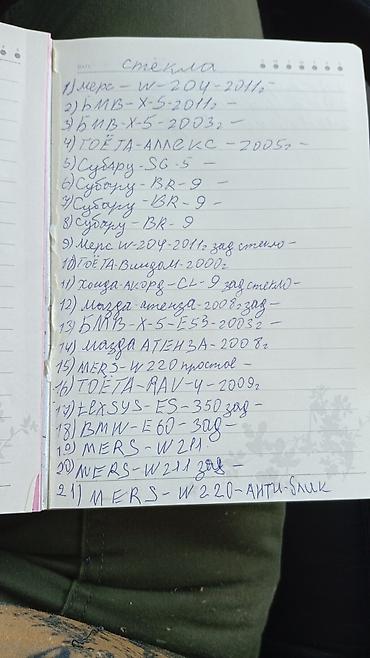 стёкла
1) мерс - W-204-2011г
2) БМВ-Х-5-2011г -
3) БМВ-Х-5-2003г -
4) ТОЁТА-Аллекс - 2005г -
5) Субару-SG-5 -
6) Субару-BR-9 -
7) Субару-BR-9 -
8) Субару-BR-9
9) Мерс W-204-2011г зад стекло -
10) ТОЁТА-Виндом-2000г
11) Хонда-Акорд-CL-9 зад стекло -
12) мазда-атенза-2008г зад -
13) БМВ-Х-5-Е53-2003г -
14) мазда АТЕНЗА-2008г
15) MERS-W220 простое -
16) ТОЁТА-RAV-4-2009г
17) LEXSYS-ES-350 зад -
18) BMW-E60-зад -
19) MERS-W211
20) MERS-W211 зад -
21) MERS-W220-АНТИ-блик